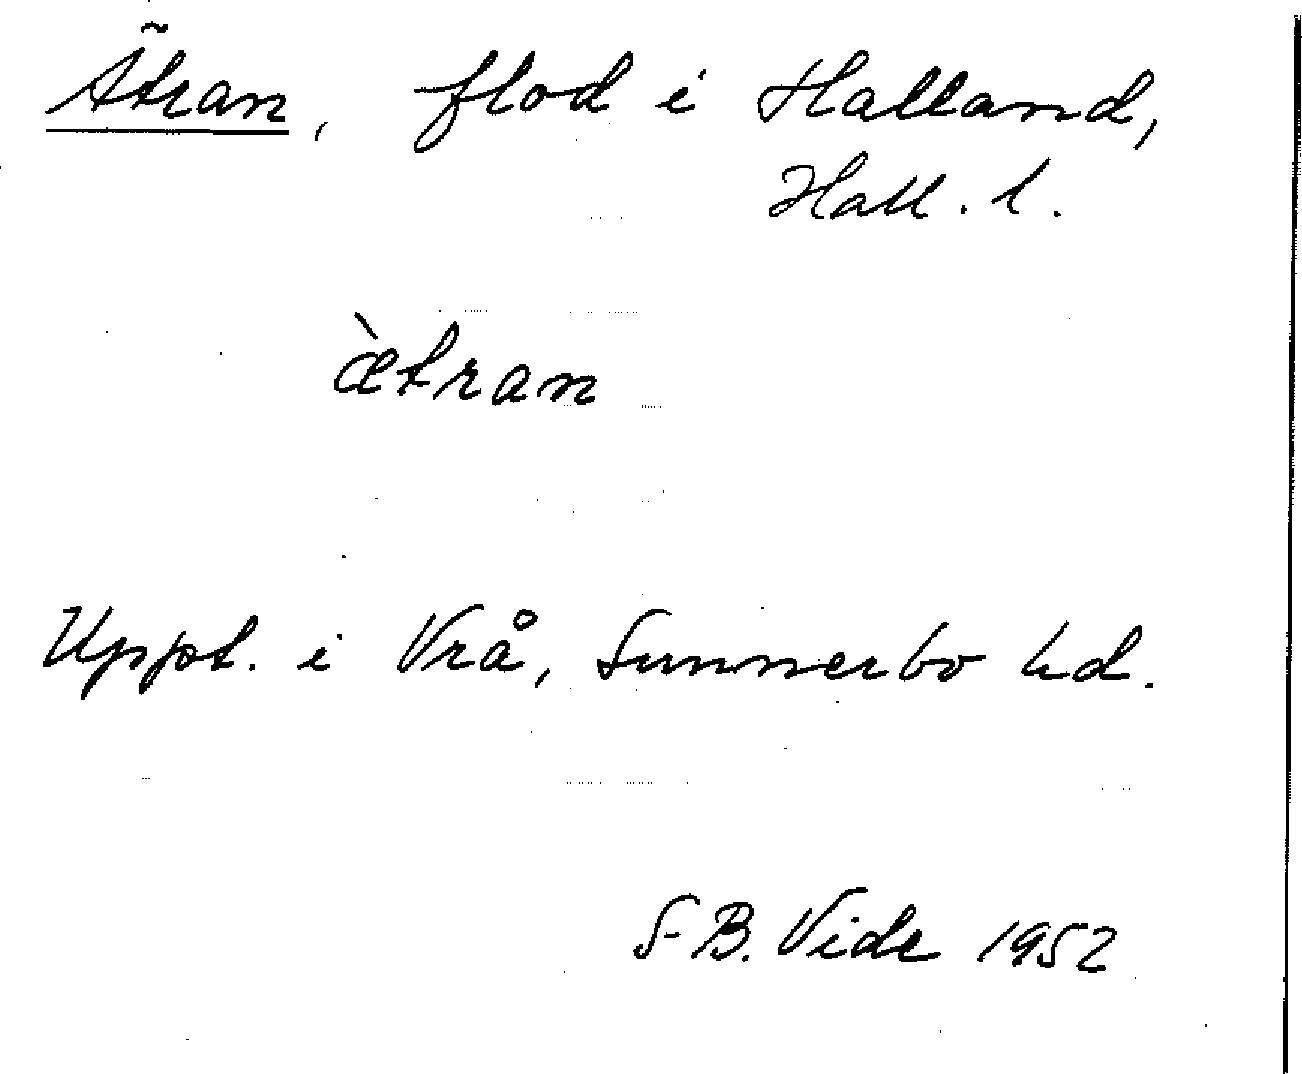 Ätran, flod i Halland,
Hall. l.
æ̀tran
Uppt. i Vrå, Sunnerbo hd.
S-B. Vide 1952